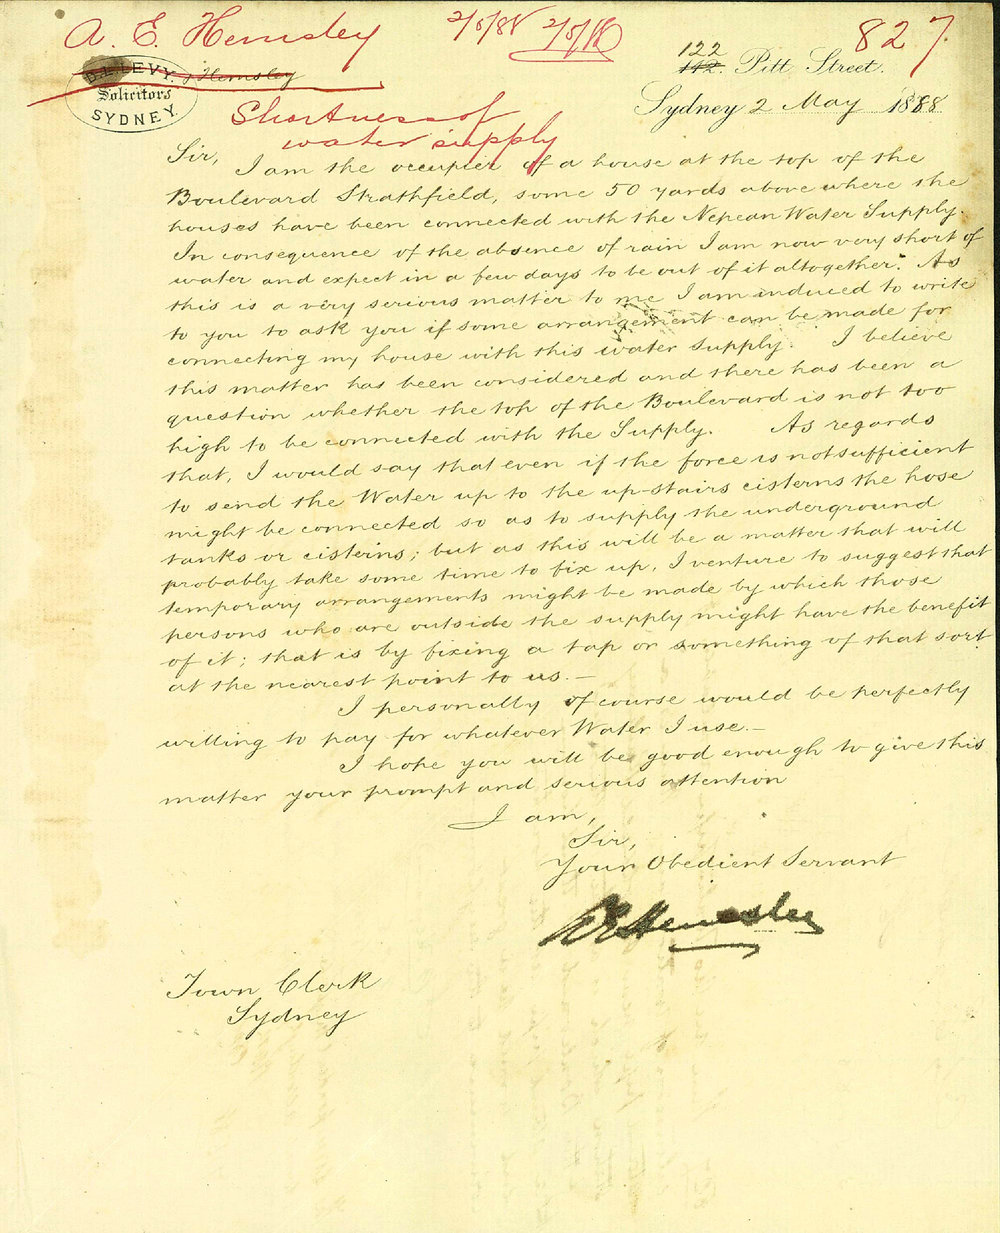 A. E. Hemsley 2/5/88 2/5/88 827
B.L. LEVY. & Hemsley
Solicitors
SYDNEY.
122
142. Pitt Street.
Sydney 2 May 1888
Shortness of
water supply
Sir,
I am the occupier of a house at the top of the
Boulevard Strathfield, some 50 yards above where the
houses have been connected with the Nepean Water Supply.
In consequence of the absence of rain I am now very short of
water and expect in a few days to be out of it altogether. As
this is a very serious matter to me I am induced to write
to you to ask you if some arrangement can be made for
connecting my house with this water supply. I believe
this matter has been considered and there has been a
question whether the top of the Boulevard is not too
high to be connected with the Supply. As regards
that, I would say that even if the force is not sufficient
to send the Water up to the up-stairs cisterns the hose
might be connected so as to supply the underground
tanks or cisterns; but as this will be a matter that will
probably take some time to fix up, I venture to suggest that
temporary arrangements might be made by which those
persons who are outside the supply might have the benefit
of it; that is by fixing a tap or something of that sort
at the nearest point to us.—
I personally of course would be perfectly
willing to pay for whatever Water I use.—
I hope you will be good enough to give this
matter your prompt and serious attention
I am,
Sir,
Your Obedient Servant
A E Hemsley
Town Clerk
Sydney